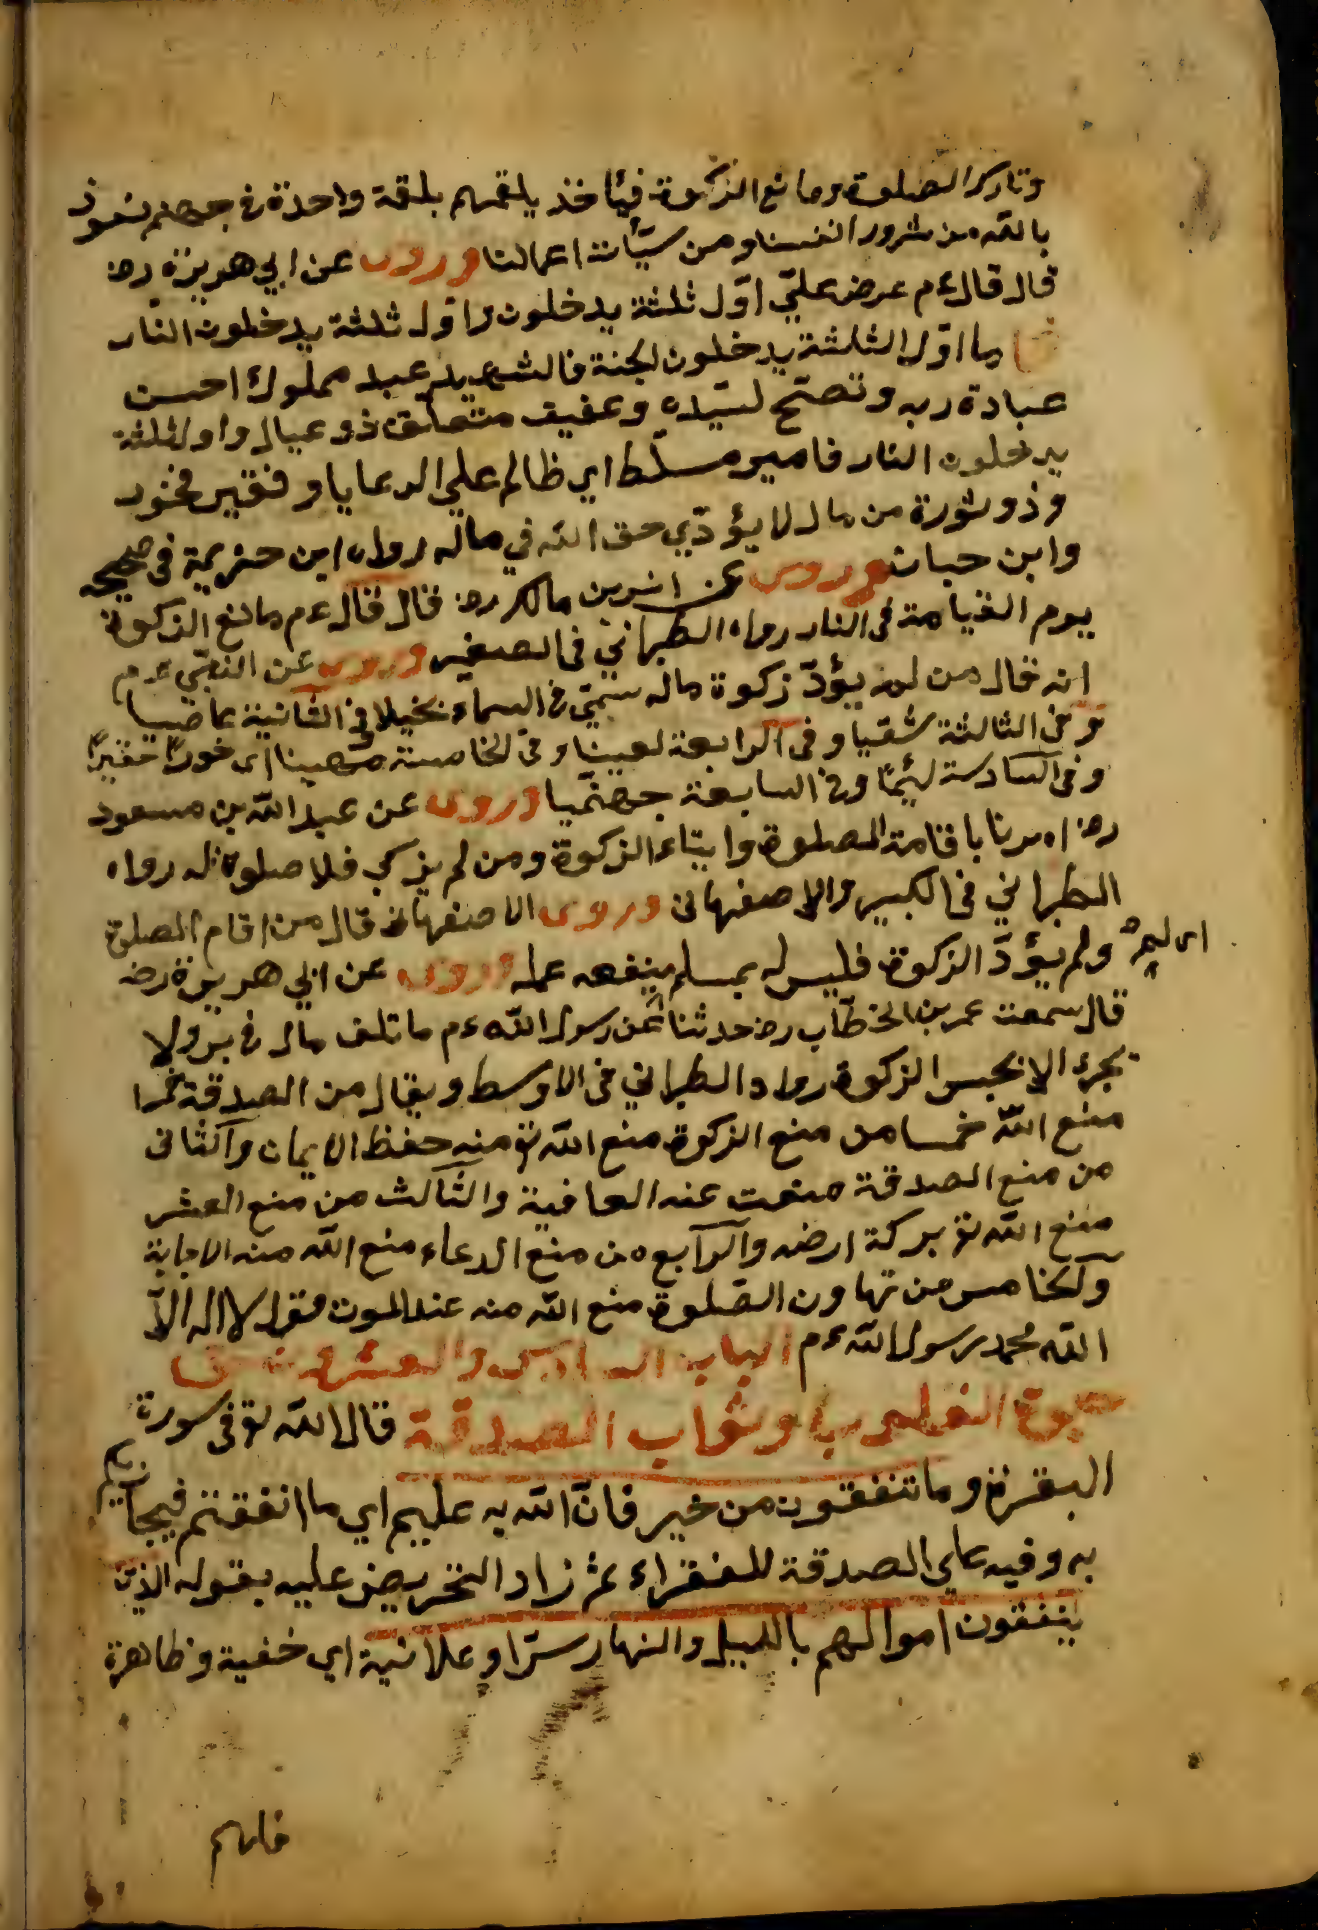 وتارك الصلوة ومانع الزكوة فيأخذ يلقمهم بلقمة واحدة في جهنم نعوذ
بالله من شرور انفسنا ومن سيّأت اعمالنا وروى عن ابي هريرة رض
قال قال ءم عرض عليّ اوّل ثلثة يدخلون واوّل ثلثة يدخلون النار
ما اوّل الثلثة يدخلون الجنة فالشهيد عبد مملوك احسن
عبادة ربه ونصح لسيّده وعفيف متعفّف ذو عيال واول ثلثة
يدخلون النار فامير مسلّط اي ظالم علي الرعايا وفقير فخور
وذو ثورة من مال لا يؤدّي حق الله في ماله رواه ابن خزيمة في صحيحه
وابن حبان وروى عن انس بن مالك رض قال قال ءم مانع الزكوة
يوم القيامة في النار رواه الطبراني في الصغير وروى عن النبيّ ءم
انه قال من لم يؤدّ زكوة ماله سمّي في السماء بخيلا وفي الثانية عاصيا
وفي الثالثة شقيا وفي الرابعة لعينا وفي الخامسة مهينا اي خورًا حقيرًا
وفي السادسة لئيمًا وفي السابعة جهنّميا وروى عن عبد الله بن مسعود
رض امرنا باقامة الصلوة وايتاء الزكوة ومن لم يزكي فلا صلوة له رواه
الطبراني في الكبير والاصفهاني وروى الاصفهاني قال من اقام الصلوة
ولم يؤدّ الزكوة فليس له بمسلم ينفعه عمله وروى عن ابي هريرة رض
قال سمعت عمر بن الخطّاب رض حدثنا عن رسول الله ءم ما تلف مال في بر ولا
بحر الا بحبس الزكوة رواه الطبراني في الاوسط ويقال من الصدقة خمرا
منع الله خمسا من منع الزكوة منع الله تع منه حفظ الايمان والثاني
من منع الصدقة منعت عنه العافية والثالث من منع العشر
منع الله تع بركة ارضه والرابع من منع الدعاء منع الله منه الاجابة
والخامس من تهاون الصّلوة منع الله منه عند الموت قول لا اله الا
الله محمد رسول الله ءم الباب السادس والعشرون في
الصدقة قال الله تع في سورة
البقرة وما تنفقون من خير فانّ الله به عليم اي ما انفقتم فيجازيكم
به وفيه علي الصدقة للفقراء ثم زاد التحريض عليه بقوله الذين
ينفقون اموالهم بالليل والنهار سرّا وعلانية اي خفية وظاهرة
فلهم